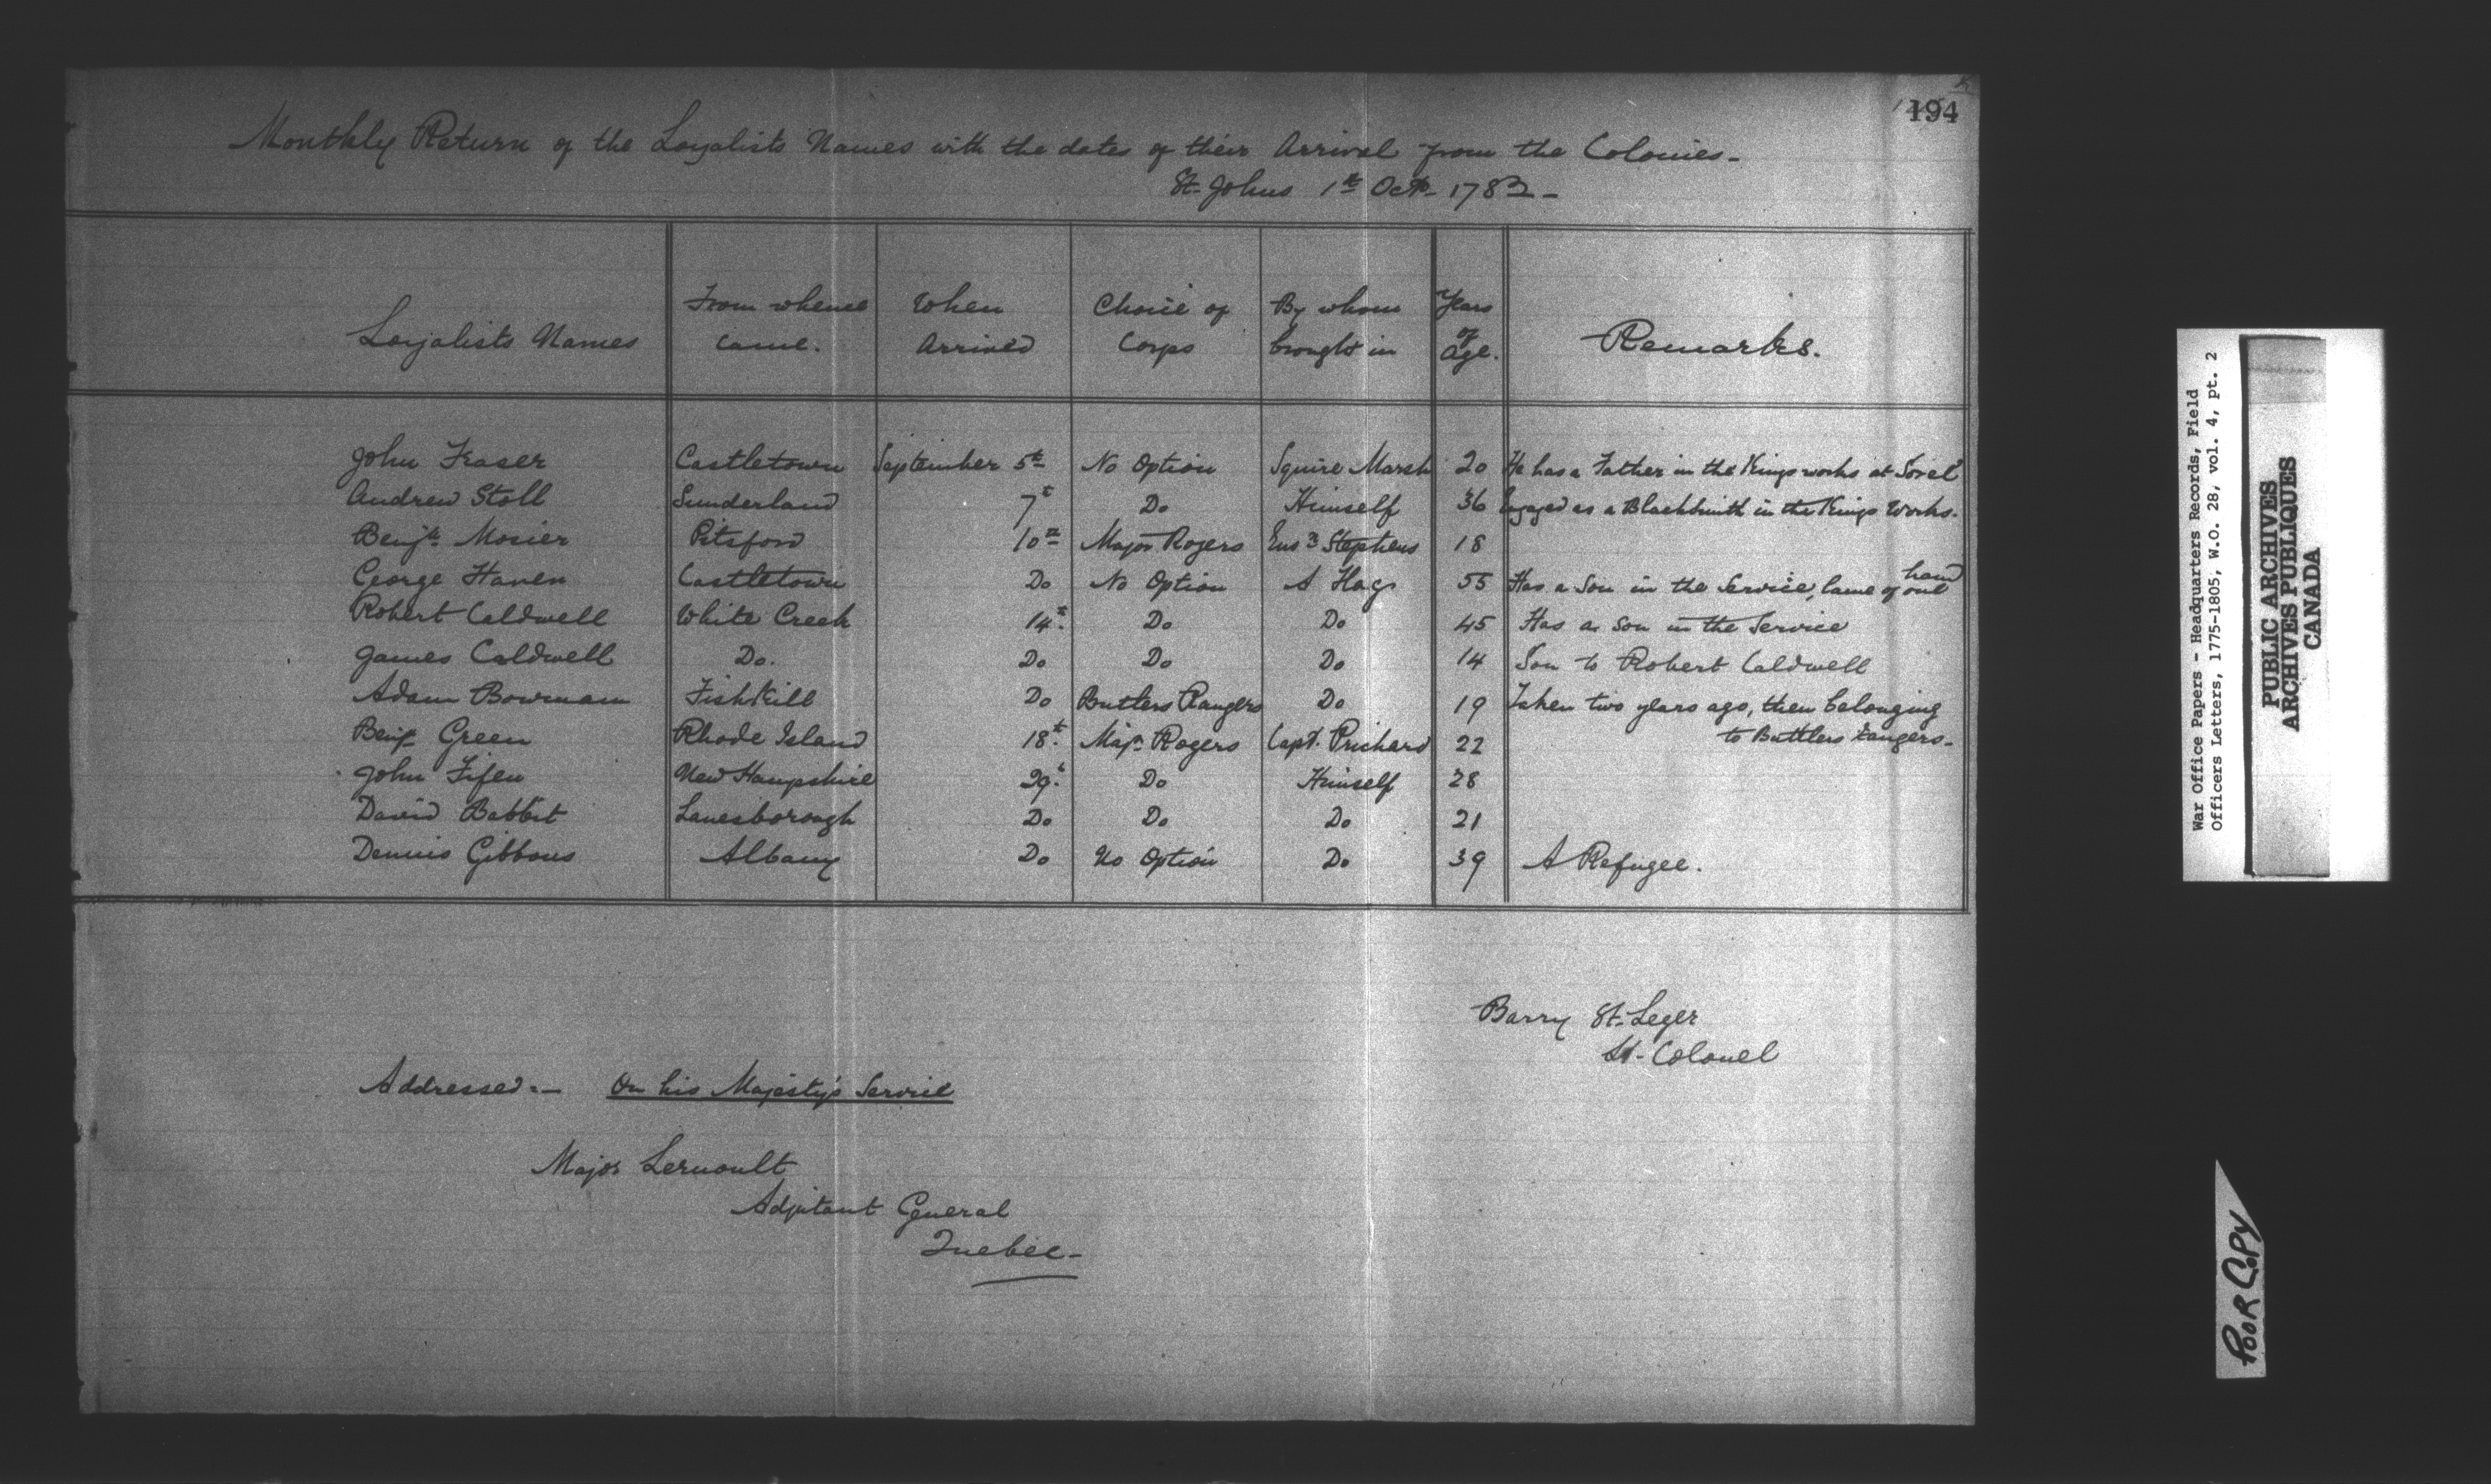 194
Monthly Return of the Loyalists Names with the dates of their Arrival from the Colonies-
St. Johns 1st Octr- 1782-
Loyalists Names | From whence came. | When Arrived | Choice of Corps | By whom brought in | Years of Age. | Remarks.
John Fraser | Castletown | September 5th | No Option | Squire Marsh | 20 | He has a Father in the Kings works at Sorel
Andrew Stoll | Sunderland | 7t | Do | Himself | 36 | Engaged as a Blacksmith in the Kings Works.
Benjn Mosier | Pitsford | 10th | Major Rogers | Ens Stephens | 18
George Haven | Castletown | Do | No Option | A Hag | 55 | Has a Son in the Service, lame of one hand
Robert Caldwell | White Creek | 14t. | Do | Do | 45 | Has a Son in the Service
James Caldwell | Do. | Do | Do | Do | 14 | Son to Robert Caldwell
Adam Bowman | Fish Kill | Do | Butlers Rangers | Do | 19 | Taken two years ago, then belonging
to Buttlers Rangers-
Benj- Green | Rhode Island | 18t. | Majr Rogers | Capt. Prichard | 22
John Fifen | New Hampshire | 29t. | Do | Himself | 28
David Babbit | Lanesborough | Do | Do | Do | 21
Dennis Gibbons | Albany | Do | No Option | Do | 39 | A Refugee.
Barry St. Leger
Lt- Colonel
Addressed:- On his Majesty's Service
Major Lernoult
Adjutant General
Quebec-
War Office Papers - Headquarters Records, Field
Officers Letters, 1775-1805, W.O. 28, vol. 4, pt. 2
PUBLIC ARCHIVES
ARCHIVES PUBLIQUES
CANADA
POOR COPY